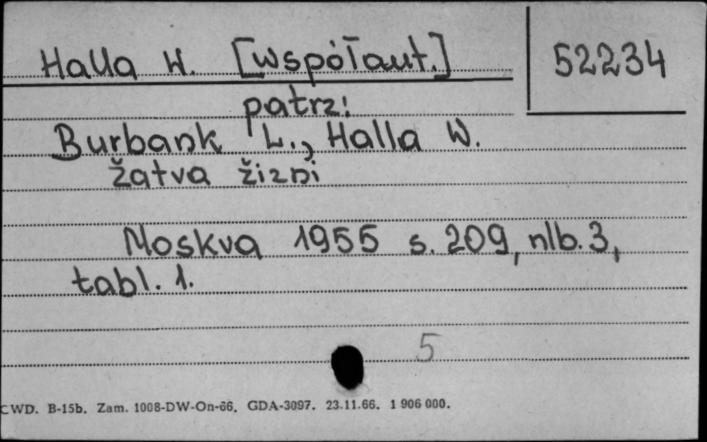 Halla W. [współaut.]
52234
patrz:
Burbank L., Halla W.
Žatva žizni
Moskva 1955 s. 209, nlb. 3,
tabl. 1.
5
CWD. B-15b. Zam. 1008-DW-On-66. GDA-3097. 23.11.66. 1 906 000.